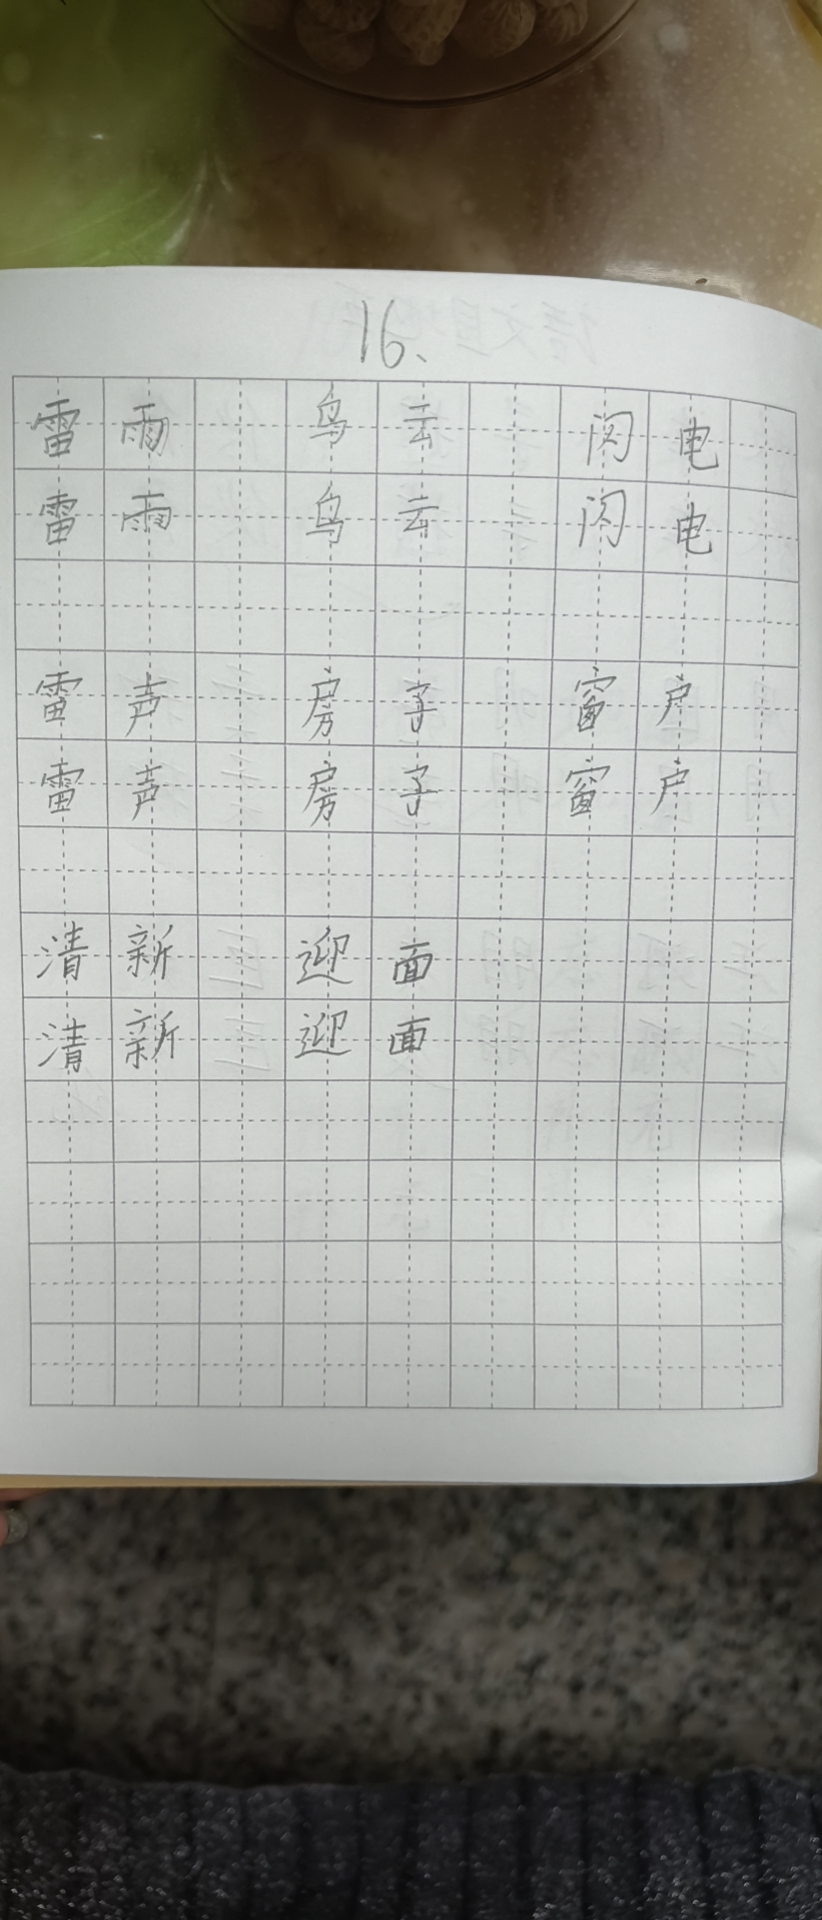 16、
雷雨 乌云 闪电
雷雨 乌云 闪电
雷声 房子 窗户
雷声 房子 窗户
清新 迎面
清新 迎面